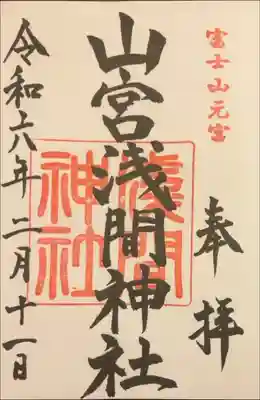 富士山元宮
奉拝
山宮浅間神社
浅間
神社
令和六年二月十一日